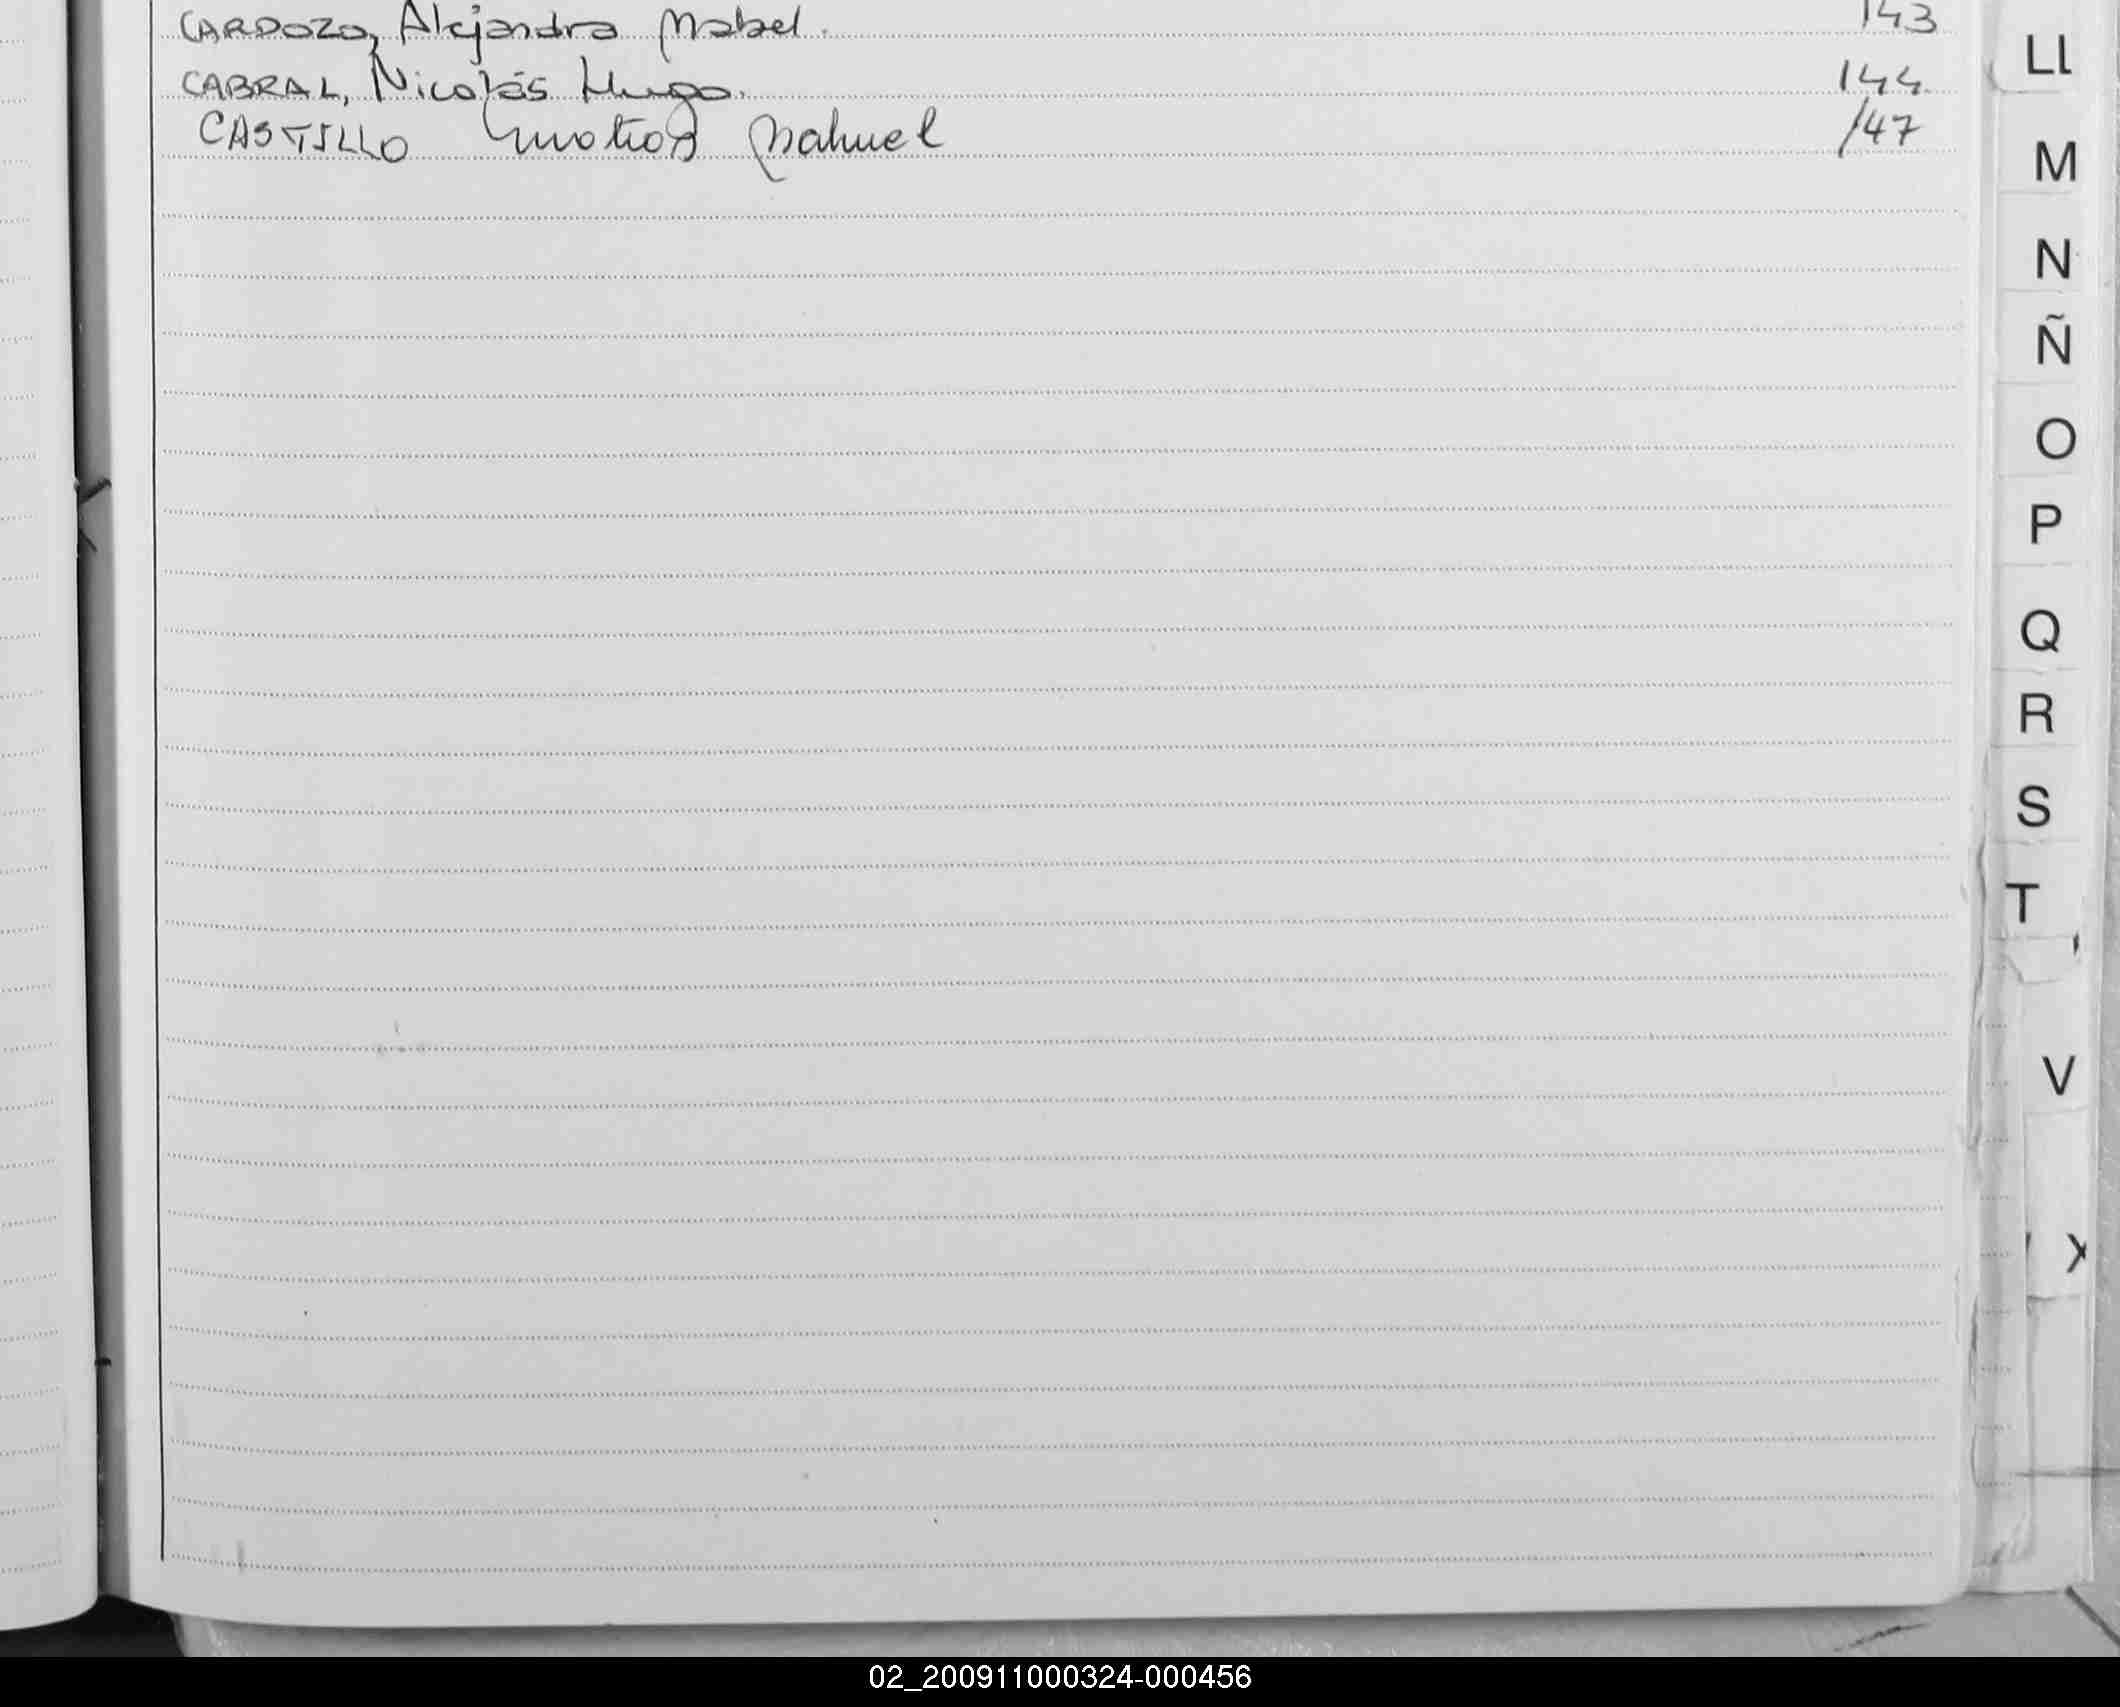 CARDOZO, Alejandra Mabel. 143
CABRAL, Nicolás Hugo. 144
CASTILLO Matias Nahuel 147
LL
M
N
Ñ
O
P
Q
R
S
T
V
X
02_200911000324-000456